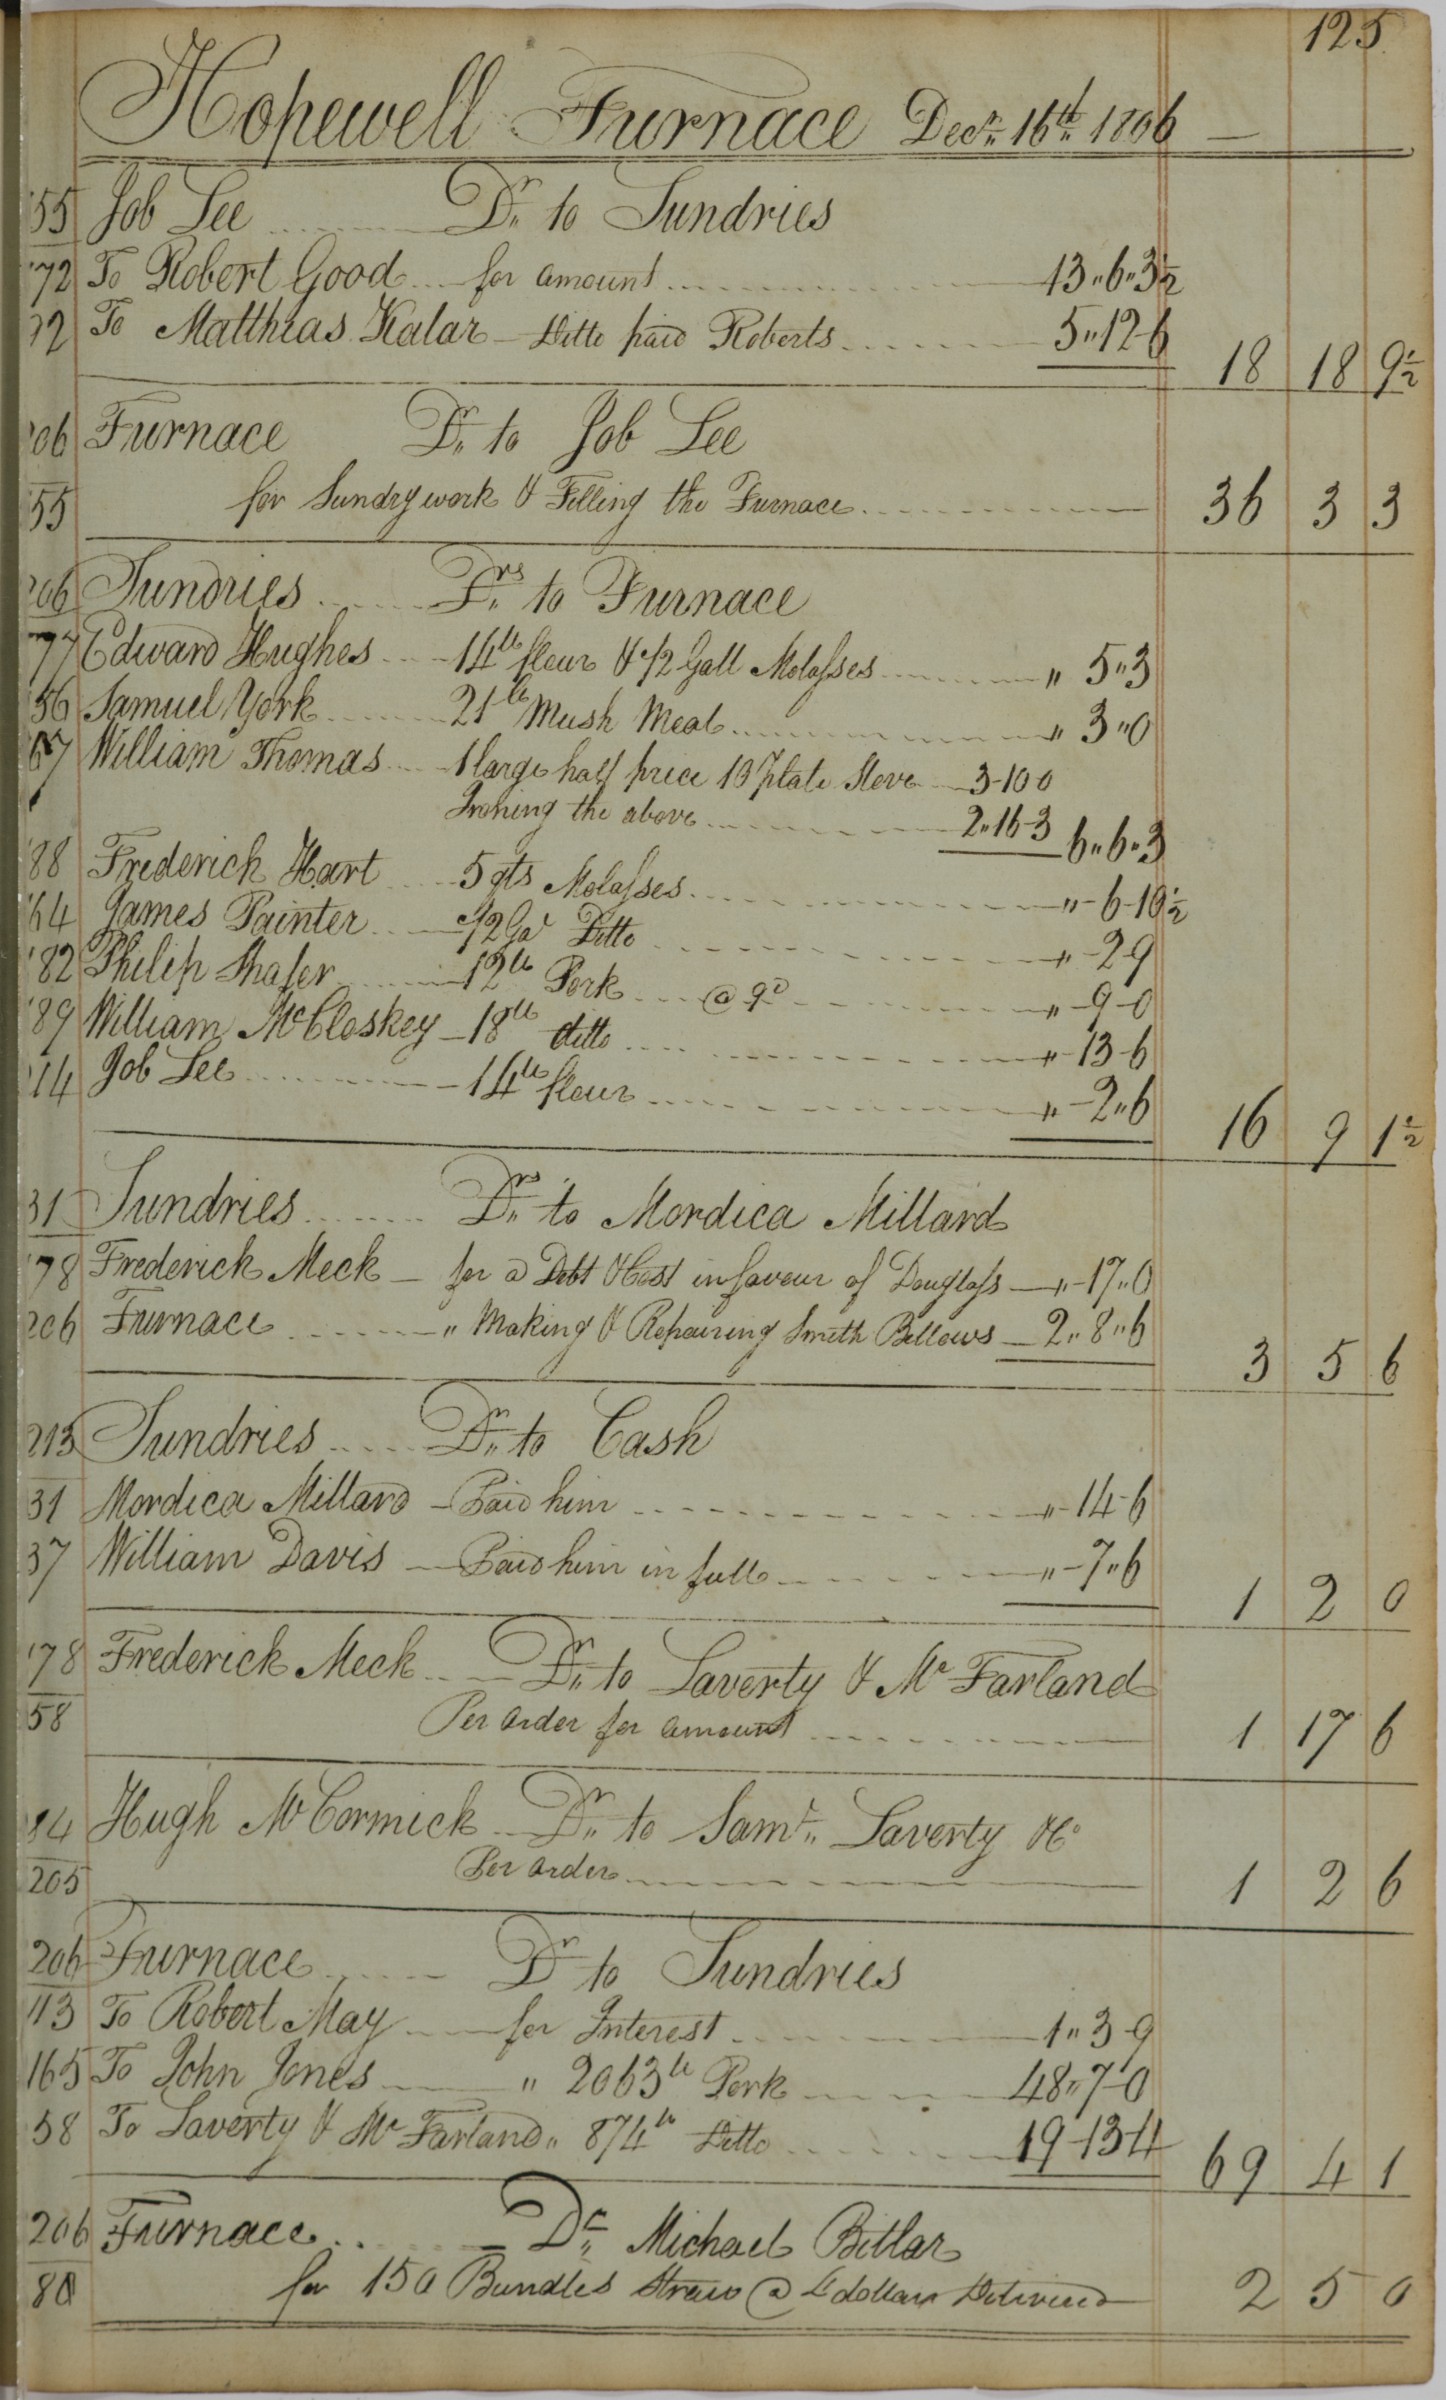 125
Hopewell Furnace Decr. 16th. 1806
55 Job Lee Dr. to Sundries
172 To Robert Good for amount 13"6"3½
To Matthias Kalar Ditto paid Roberts 5"12-6 18 18 9½
206 Furnace Dr. to Job Lee
55 for Sundry work & Filling the Furnace 36 3 3
206 Sundries Drs. to Furnace
177 Edward Hughes 14lb flour & 1/2 Gall Molasses " 5"3
56 Samuel York 21lb Mush Meal " 3"0
William Thomas 1 large half price 10 plate Stove 3-10 0
Ironing the above 2"16-3 6"6"3
188 Frederick Hart 5 qts Molasses "-6-10½
64 James Painter 1/2 Gal Ditto "-2-9
182 Philip Shafer 12lb Pork @ 9d "-9-0
189 William McCloskey 18lb ditto "-13-6
114 Job Lee 14lb flour "-2"6 16 9 1½
31 Sundries Drs. to Mordica Millard
178 Frederick Meck for a Debt & Cost in favour of Douglass "-17"0
206 Furnace " Making & Repairing Smith Bellows 2"8"6 3 5 6
213 Sundries Dr. to Cash
31 Mordica Millard Paid him "-14-6
37 William Davis Paid him in full "-7"6 1 2 0
178 Frederick Meck Dr. to Laverty & Mc Farland
58 Per order for amount 1 17 6
Hugh McCormick Dr. to Saml. Laverty &Co
205 Per order 1 2 6
206 Furnace Dr to Sundries
113 To Robert May for Interest 1"3-9
165 To John Jones " 2063lb Pork 48"7-0
58 To Laverty & Mc Farland " 874lb Ditto 19-13-4 69 4 1
206 Furnace Dr. Michael Bitlar
80 for 150 Bundles Straw @ 4 dollars Delivered 2 5 0